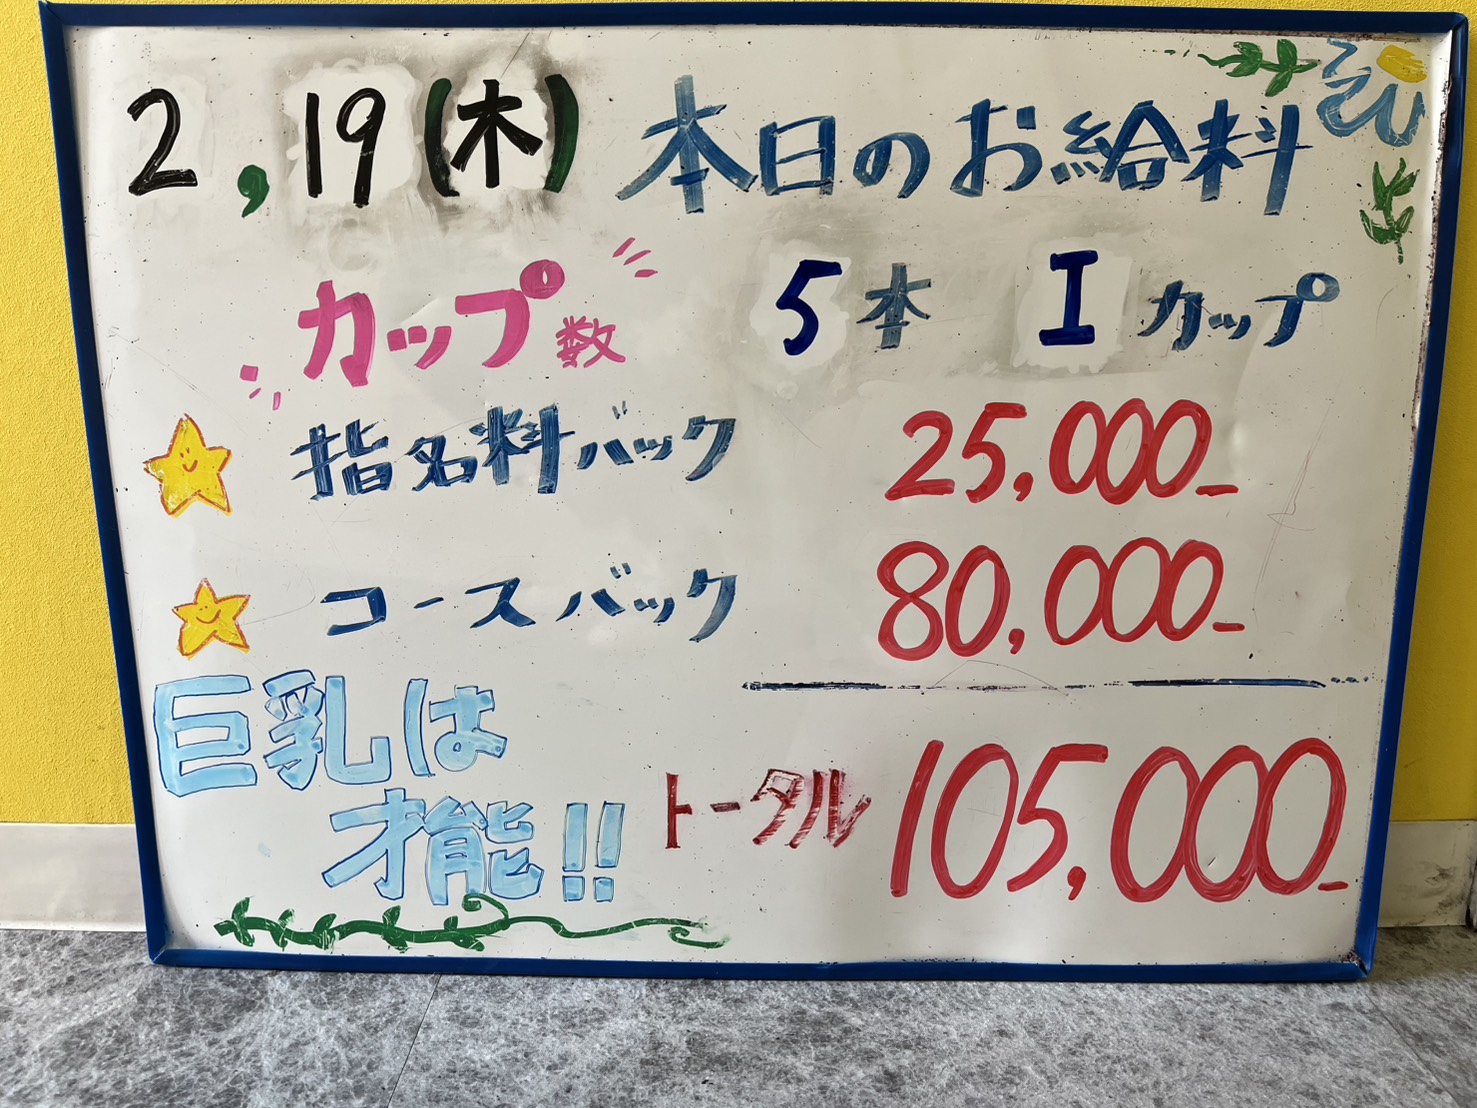 2,19(木) 本日のお給料
カップ数 5本 Iカップ
指名料バック 25,000-
コースバック 80,000-
巨乳は
才能!!
トータル 105,000-